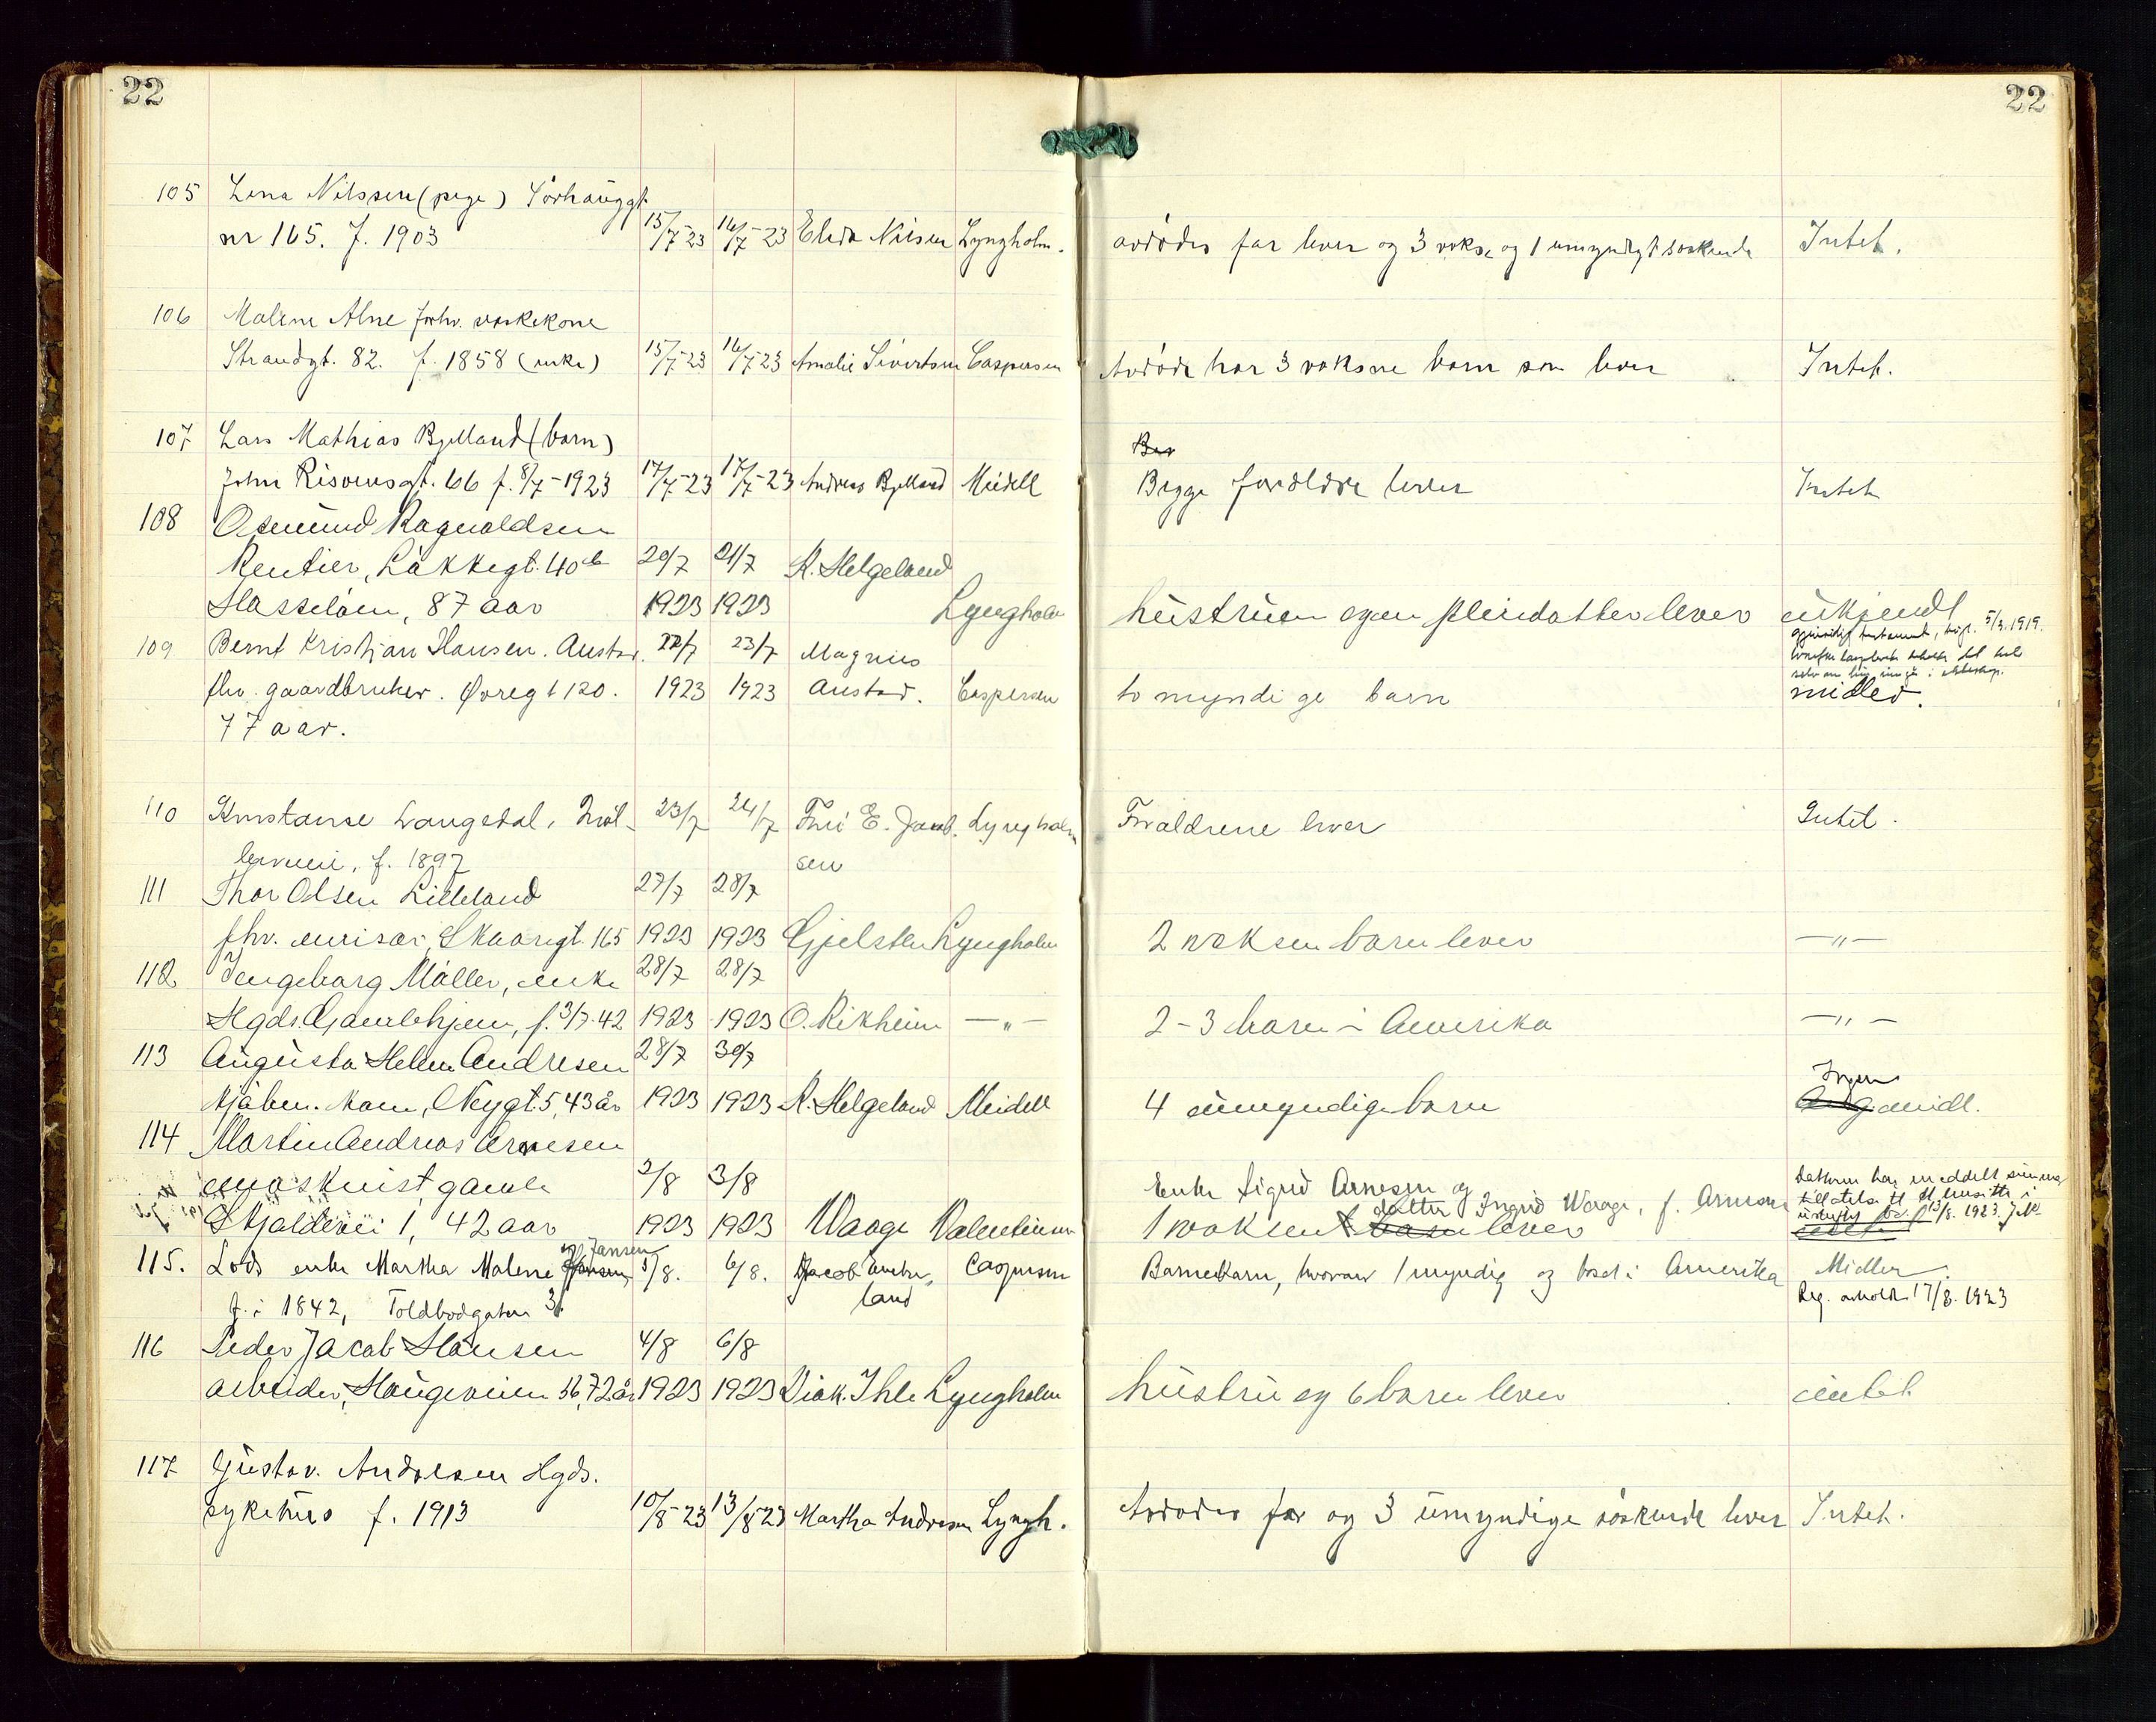 22
22
105 Lena Nilssen (pige) Sörhauggt
nr 165. f. 1903 15/7-23 16/7-23 Elida Nilsen Lyngholm. avdödes far lever og 3 voksne og 1 umyndigt söskende Intet.
106 Malene Alne forhv. vaskekone
Strandgt. 82. f. 1858 (enke) 15/7-23 16/7-23 Amalie Sivertsen Caspersen Avdöde har 3 voksne barn som lever Intet.
107 Lars Mathias Bjelland (barn)
John Risøensgt. 66 f. 8/7-1923 17/7-23 17/7-23 Andreas Bjelland Meidell Begge forældre lever Intet
108 Osmund Ragnoldsen
Rentier, Läkkegt. 40 b 20/7 21/7 K. Helgeland
Hasseløen, 87 aar 1923 1923 Lyngholm hustruen og en pleiedatter lever ukjendt
gjensidig testament, 5/3. 1919.
109 Bernt Kristian Hansen. Austad. 22/7 23/7 Magnus
fhv. gaardbruker. Øvregt 120. 1923 1923 Austad. Caspersen to myndige barn midler.
77 aar.
110 Konstanse Langedal, 23/7 24/7 Fru E. Jacob- Lyngholm Forældrene lever Intet.
f. 1897 sen
111 Thor Olsen Lilleland 27/7 28/7
fhv. murisar, Skaaregt. 165 1923 1923 Gjelsten Lyngholm 2 voksen barn lever —"—
112 Ingeborg Möller, enke 28/7 28/7
Hgds. Gamlehjem, f. 3/7-42 1923 1923 O. Rikheim —"— 2-3 barn i Amerika —"—
113 Augusta Helene Andresen 28/7 30/7
kjöbm. kone, Nygt. 5, 43 år 1923 1923 K. Helgeland Meidell 4 umyndige barn Ingen midl.
114 Martin Andreas Arnesen
maskinist gamle 2/8 3/8 Enke Sigrid Arnesen og
Skjoldevei 1, 42 aar 1923 1923 Waage Valentinsen 1 voksen datter Ingrid Waage, f. Arnesen lever
115. Lods enke Martha Malene Jansen 5/8. 6/8. Jacob Caspersen Barnebarn, hvorav 1 myndig og bosat i Amerika Midler.
f. i 1842, Toldbodgaten 3. land Reg. avholdt 17/8. 1923
116 Peder Jacob Hansen 4/8 6/8
arbeider, Haugeveien 36, 72 år 1923 1923 Diak. Ihle Lyngholm hustru og 6 barn lever intet
117 Gustav. Andresen Hgds.
sykehus f. 1913 10/8-23 13/8-23 Martha Andresen Lyngh. Avdødes far og 3 umyndige söskende lever Intet.